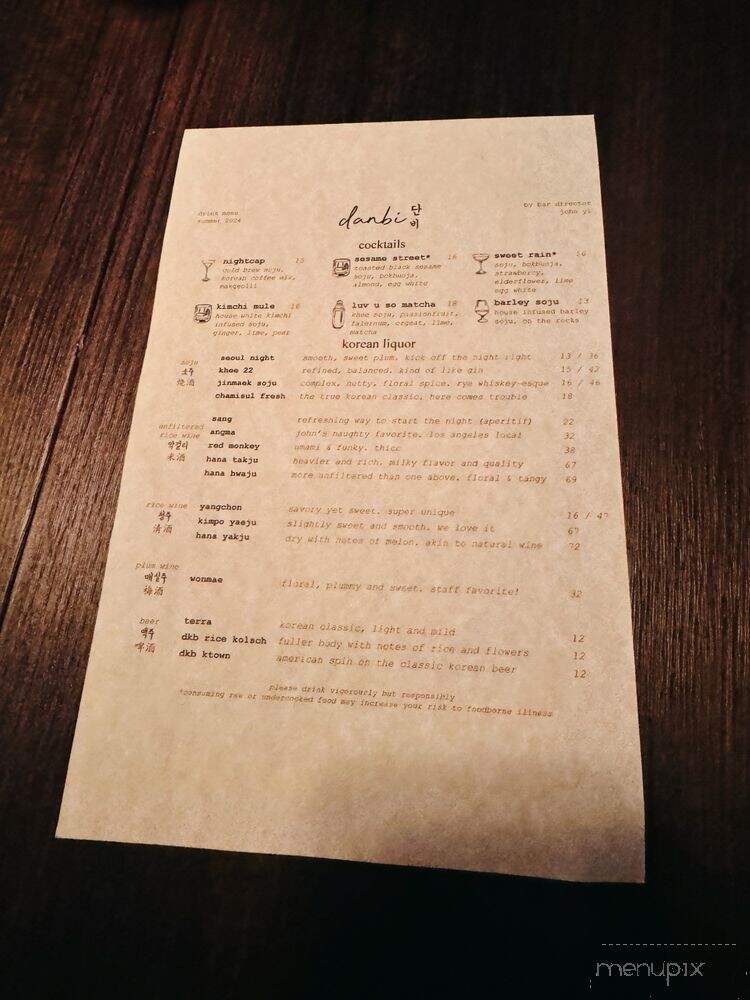 drink menu
summer 2024
danbi 단비
by bar director
john yi
cocktails
nightcap 15
cold brew soju,
korean coffee mix,
makgeolli
sesame street* 16
toasted black sesame
soju, bokbunja,
almond, egg white
sweet rain* 16
soju, bokbunja,
strawberry,
elderflower, lime
egg white
kimchi mule 16
house white kimchi
infused soju,
ginger, lime, pear
luv u so matcha 18
khee soju, passionfruit,
falernum, orgeat, lime,
matcha
barley soju 13
house infused barley
soju, on the rocks
korean liquor
soju
소주
燒酒
seoul night smooth, sweet plum. kick off the night right 13 / 36
khee 22 refined, balanced, kind of like gin 15 / 42
jinmaek soju complex, nutty, floral spice. rye whiskey-esque 16 / 46
chamisul fresh the true korean classic, here comes trouble 18
unfiltered
rice wine
막걸리
米酒
sang refreshing way to start the night (aperitif) 22
angma john's naughty favorite. los angeles local 32
red monkey umami & funky. thicc 38
hana takju heavier and rich. milky flavor and quality 67
hana hwaju more unfiltered than one above. floral & tangy 69
rice wine
청주
清酒
yangchon savory yet sweet. super unique 16 / 47
kimpo yaeju slightly sweet and smooth. we love it 67
hana yakju dry with notes of melon. akin to natural wine 72
plum wine
매실주
梅酒
wonmae floral, plummy and sweet. staff favorite! 32
beer
맥주
啤酒
terra korean classic, light and mild 12
dkb rice kolsch fuller body with notes of rice and flowers 12
dkb ktown american spin on the classic korean beer 12
please drink vigorously but responsibly
*consuming raw or undercooked food may increase your risk to foodborne illness
menupix